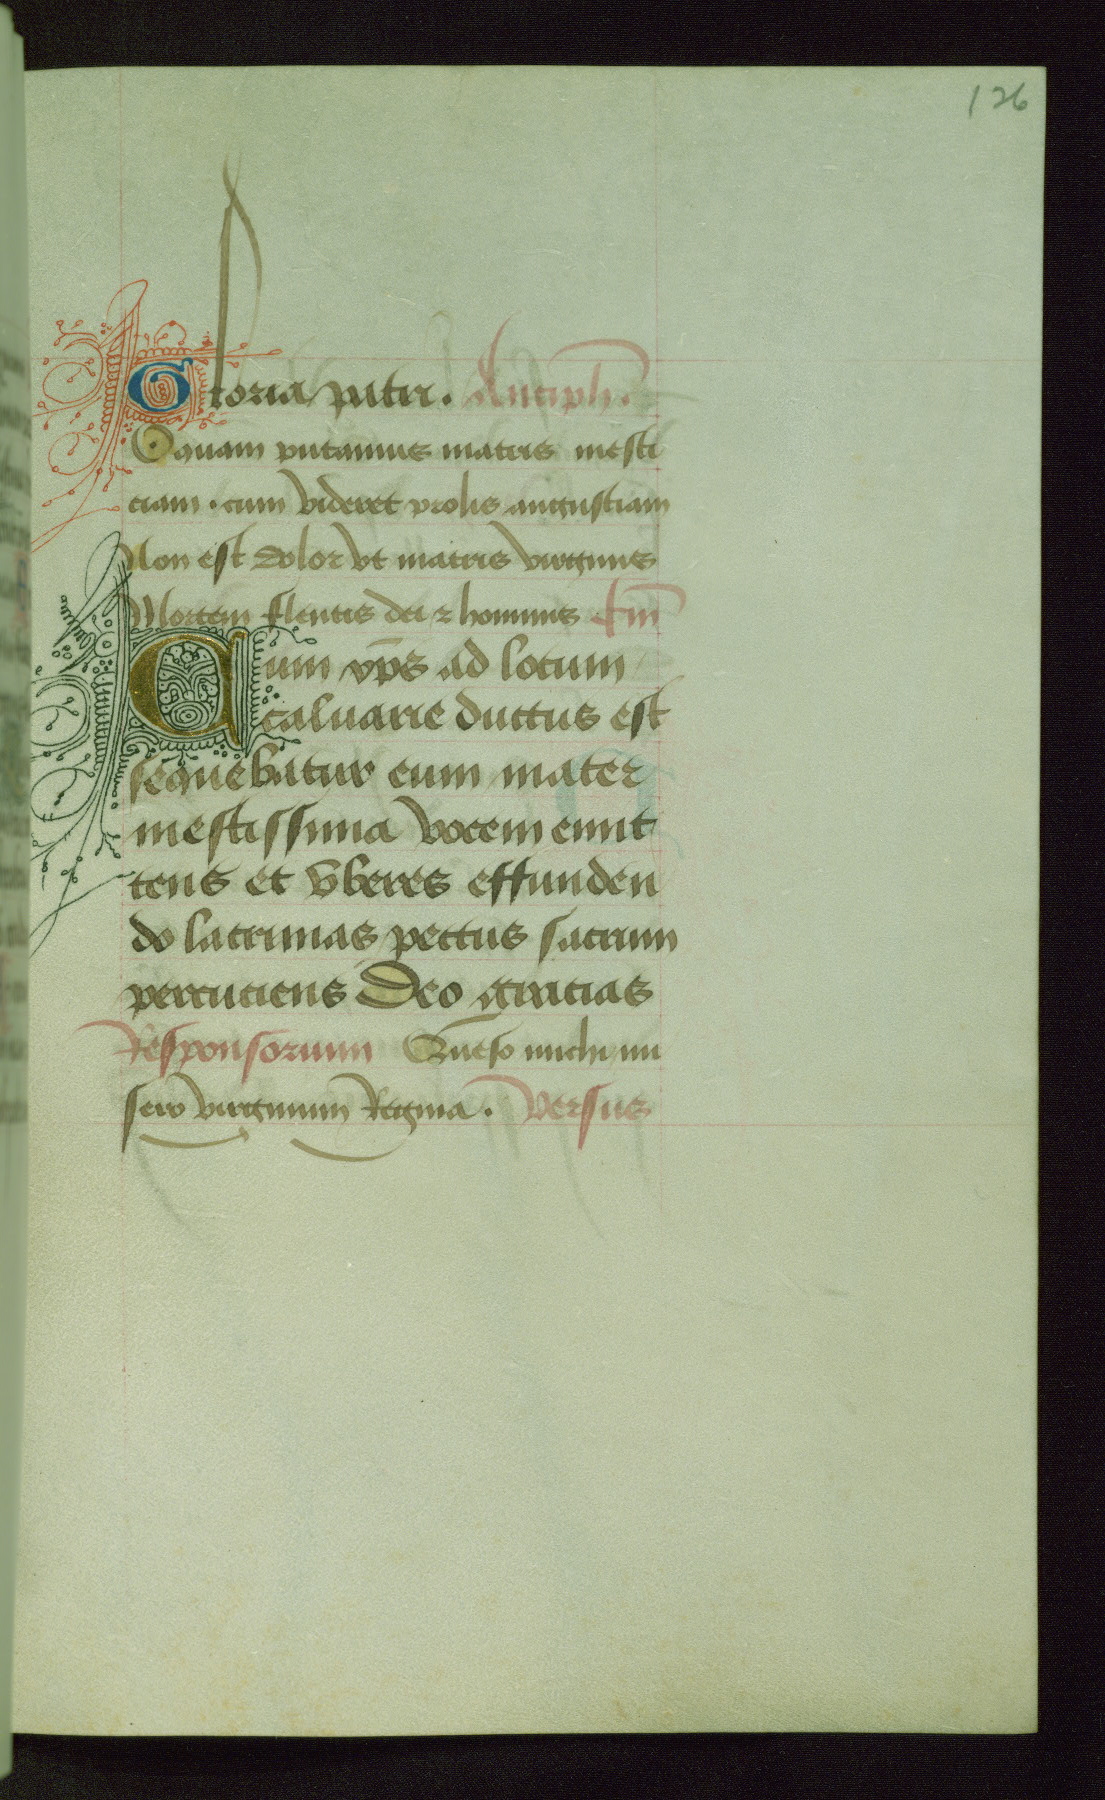 126
Gloria patri. Antiph.
O quam putamus matris mesti
ciam . cum videret prolis angustiam
Non est dolor vt matris virginis
Mortem flentis dei ⁊ hominis Cap̄m
Cum xp̄s ad locum
caluarie ductus est
sequebatur eum mater
mestissima vocem emit
tens et vberes effunden
do lacrimas pectus sacrum
percutiens Deo gracias
Responsorium Queso michi mi
sero virginum Regina . Versus